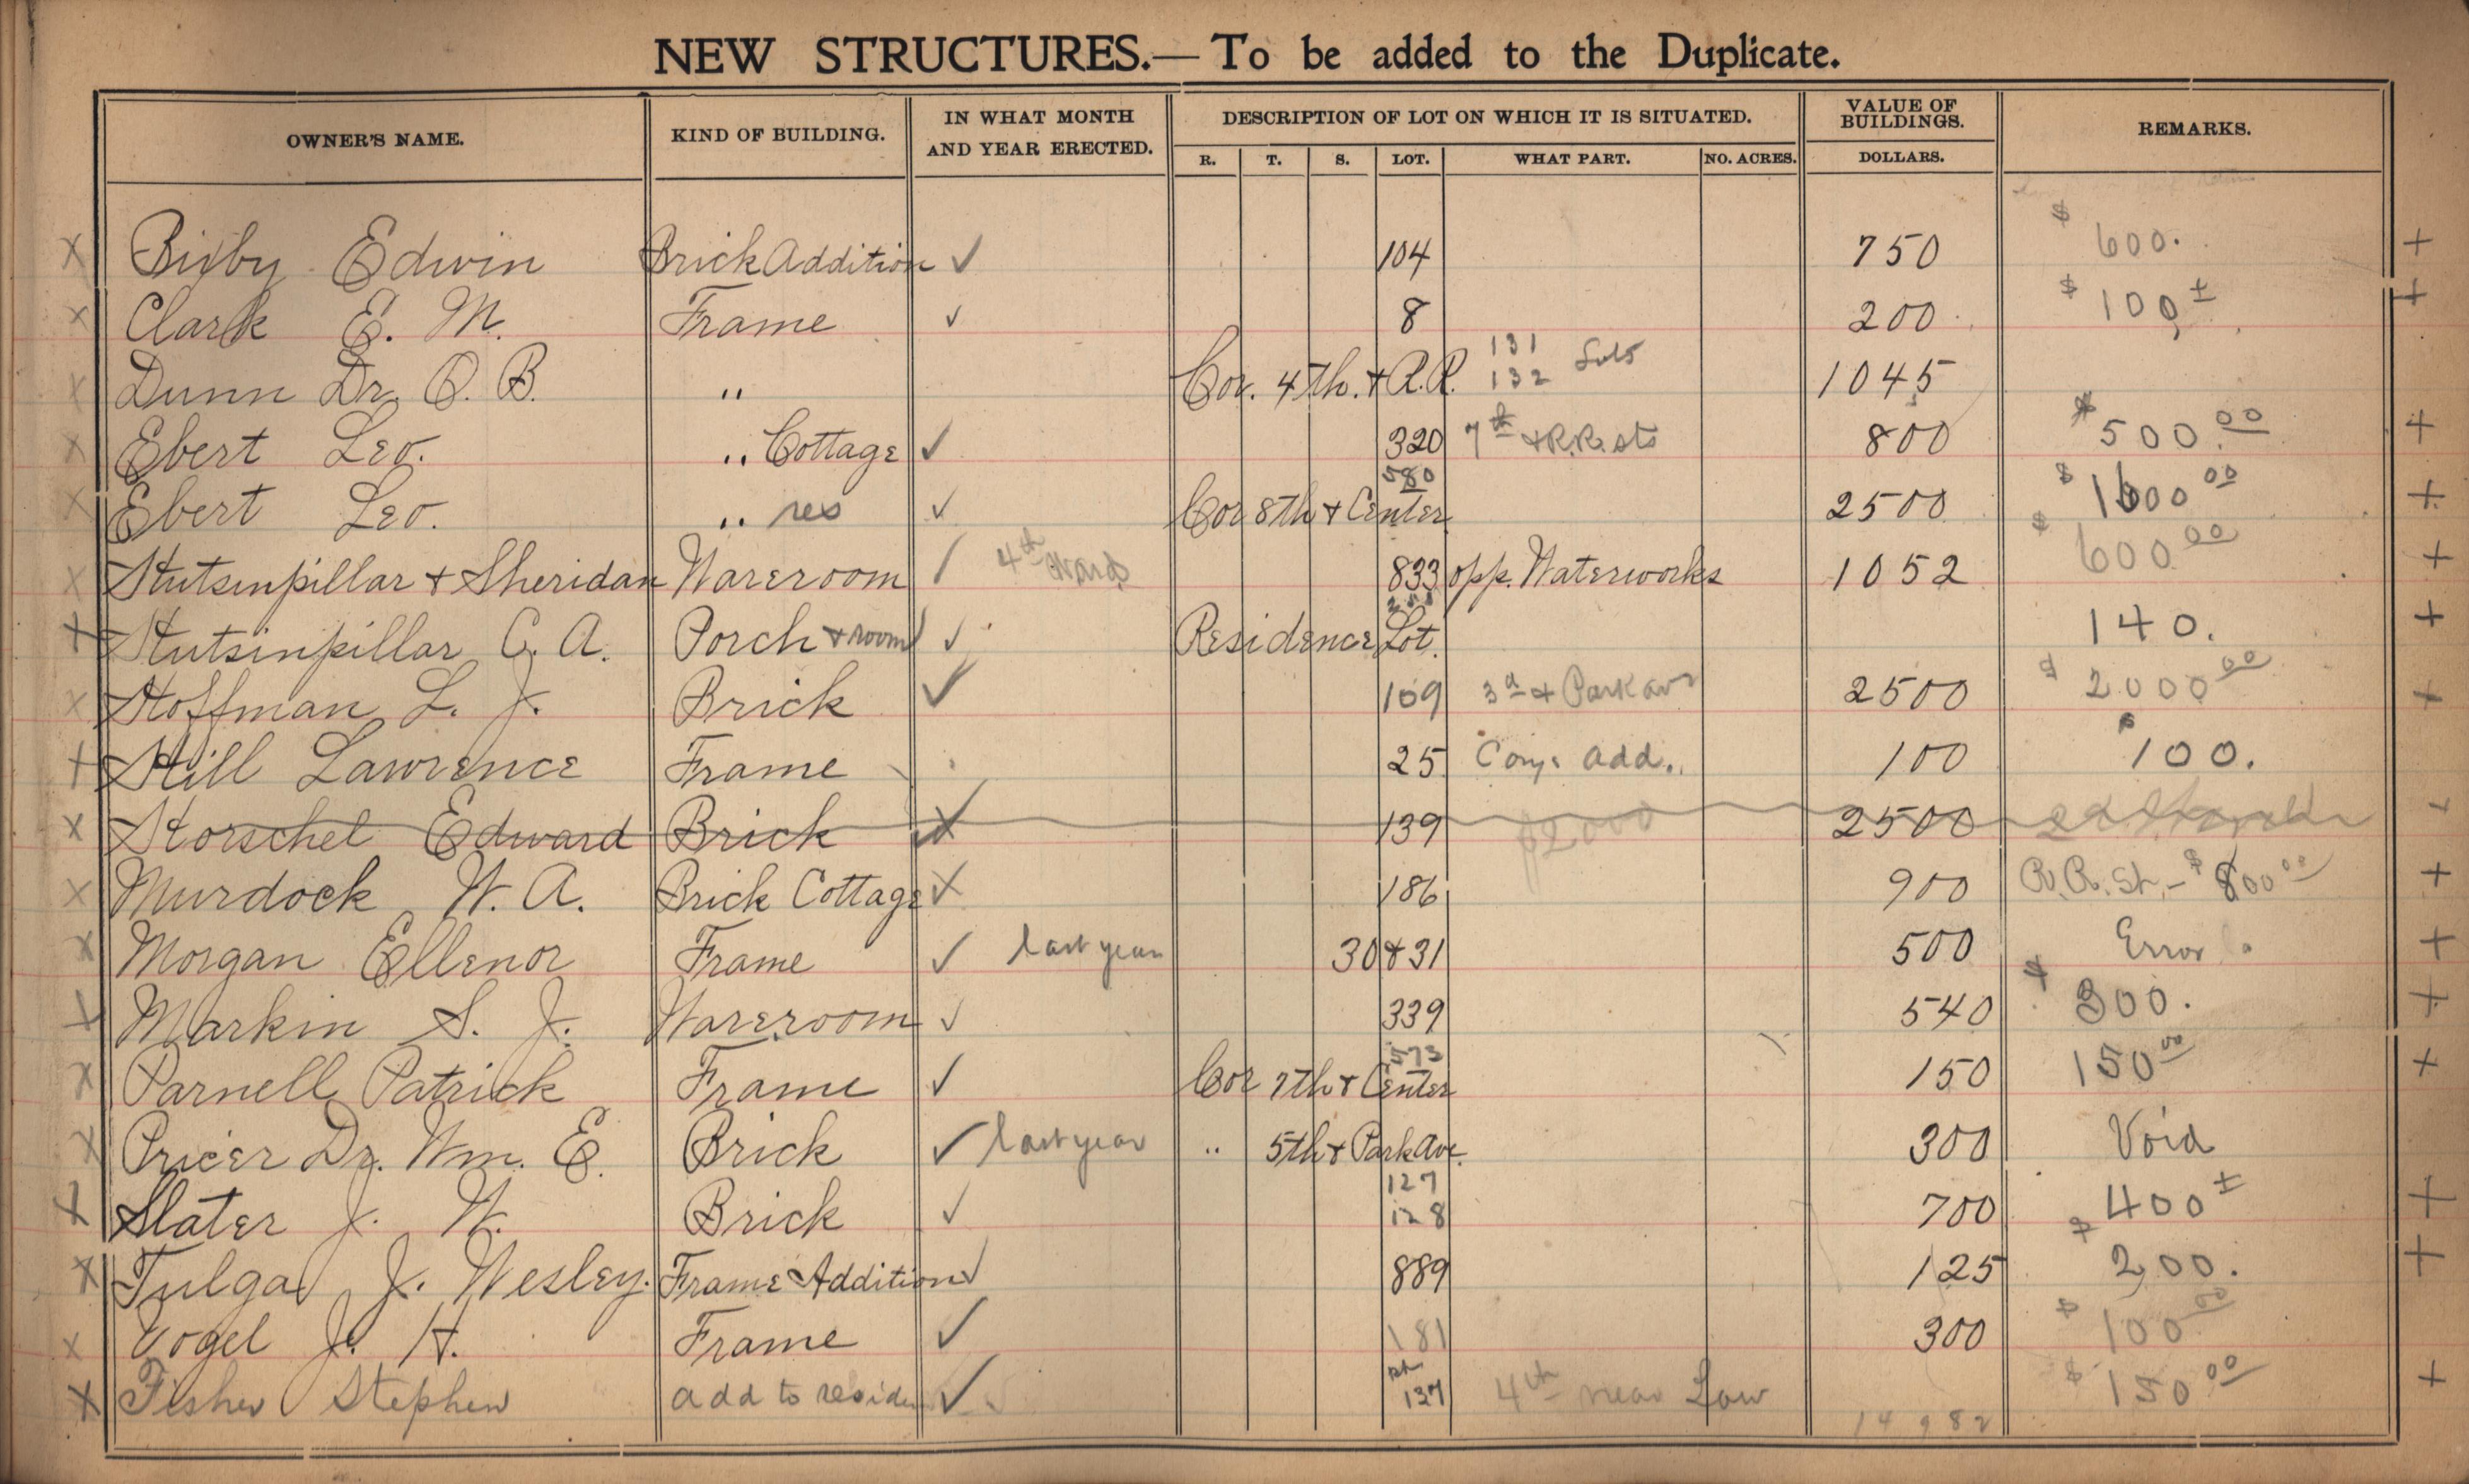 NEW STRUCTURES.— To be added to the Duplicate.
OWNER'S NAME. KIND OF BUILDING. IN WHAT MONTH AND YEAR ERECTED. DESCRIPTION OF LOT ON WHICH IT IS SITUATED. VALUE OF BUILDINGS. REMARKS.
R. T. S. LOT. WHAT PART. NO. ACRES. DOLLARS.
X Bixby Edwin Brick Addition ✓ 104 750 $ 600. +
X Clark E. M. Frame ✓ 8 200 $ 100 +
X Dunn Dr. O. B. " Cor. 4th. + R.R. 131 132 Lots 1045
X Ebert Leo. " Cottage ✓ 320 7th + R.R. sts 800 $ 500.00 +
X Ebert Leo. " res ✓ 580 Cor 8th + Center 2500 $ 1600 00 +
X Stutsinpillar + Sheridan Wareroom 4th Ward 833 opp. Waterworks 1052 $ 600 00 +
X Stutsinpillar C. A. Porch + room ✓ Residence Lot. 140. +
X Hoffman L. J. Brick ✓ 109 3d + Park av 2500 $ 2000 00 +
+ Hill Lawrence Frame 25 Cony. Add. 100 $ 100.
X Horschel Edward Brick X 139 $2000 2500 +
X Murdock W. A. Brick Cottage X 186 900 R.R. St. - $ 800 00 +
X Morgan Ellenor Frame ✓ last year 30 & 31 500 Error +
X Markin S. J. Wareroom ✓ 339 540 $ 300. +
X Parnell Patrick Frame ✓ 573 Cor 7th + Center 150 150 00 +
X Pricer Dr. Wm. E. Brick ✓ last year " 5th + Park Ave. 300 Void
X Slater J. W. Brick ✓ 127 128 700 400 +
X Tulga J. Wesley. Frame Addition ✓ 889 125 $ 200. +
X Vogel J. H. Frame ✓ 181 300 $ 100 00
X Fisher Stephen add to reside ✓ pt 137 4th near Law $ 150 00 +
14982